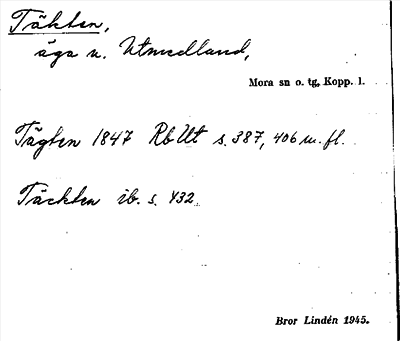 Täkten,
äga u. Utmedland,
Mora sn o. tg, Kopp. l.
Tägten 1847 RbUt s. 387, 406 m. fl.
Täckten ib. s. 432.
Bror Lindén 1945.